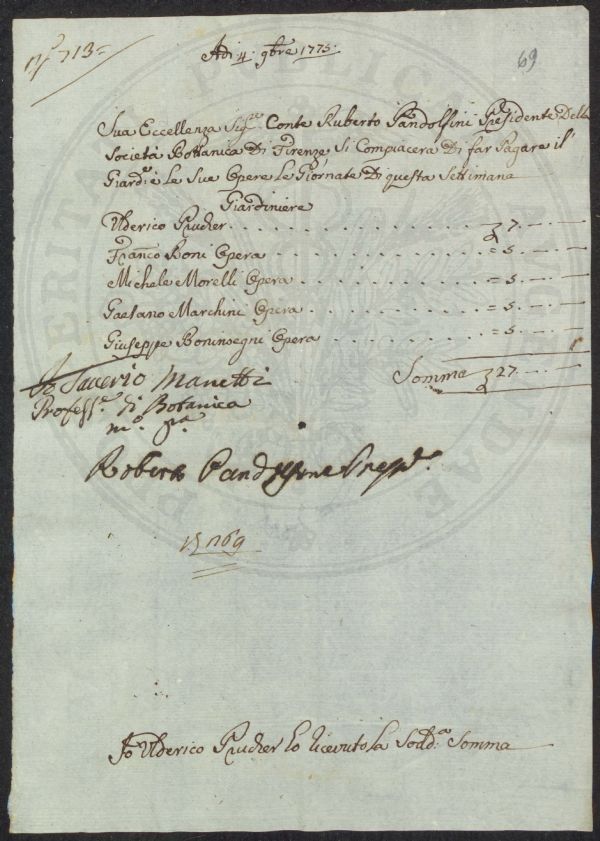 N.° 713=
69
Adi 4. 9bre 1775:
Sua Eccellenza Sig.re Conte Ruberto Pandolfini Presidente Della
Società Bottanica Di Firenze Si Compiacerà Di far Pagare il
Giard.e è Le Sue Opere Le Giornate Di questa Settimana
Giardiniere
Ulderico Prucher 7.
Franco Boni Opera = 5.
Michele Morelli Opera = 5.
Gaetano Marchini Opera = 5.
Giuseppe Boninsegni Opera = 5.
Somma 27.
Saverio Manetti
Profess.e di Botanica
m.o p.a
Roberto Pandolfini Presid.e
169
Io Ulderico Prucher ho ricevuto la Sudd.a Somma